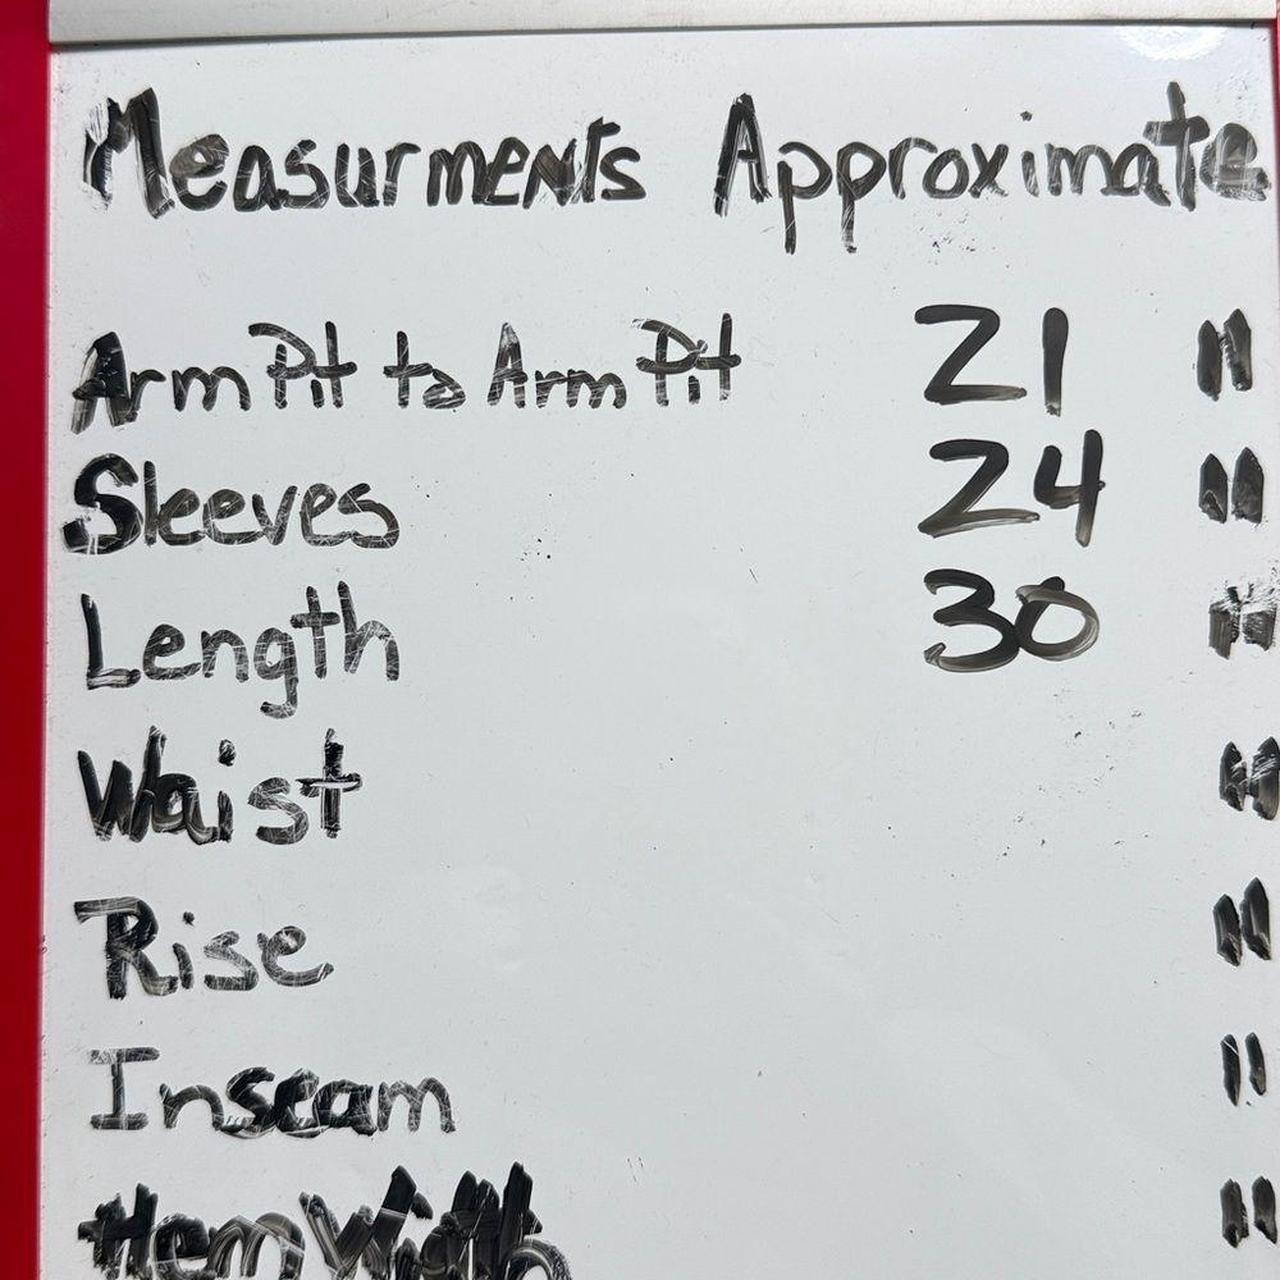 Measurments Approximate
Arm Pit to Arm Pit 21 "
Sleeves 24 "
Length 30 "
Waist "
Rise "
Inseam "
Hem Width "